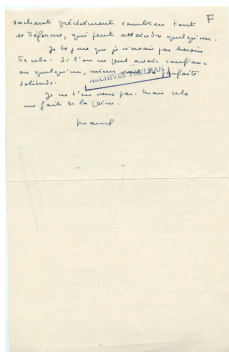 F
sachant précisément combien tout
se déforme, qui peut atteindre quelqu'un.
Je te jure que je n'avais pas besoin
de cela. Si l'on ne peut avoir confiance
en quelqu'un, mieux vaut parfaite
solitude.
ARCHIVES PAULHAN
Je ne t'en veux pas. Mais cela
me fait de la peine.